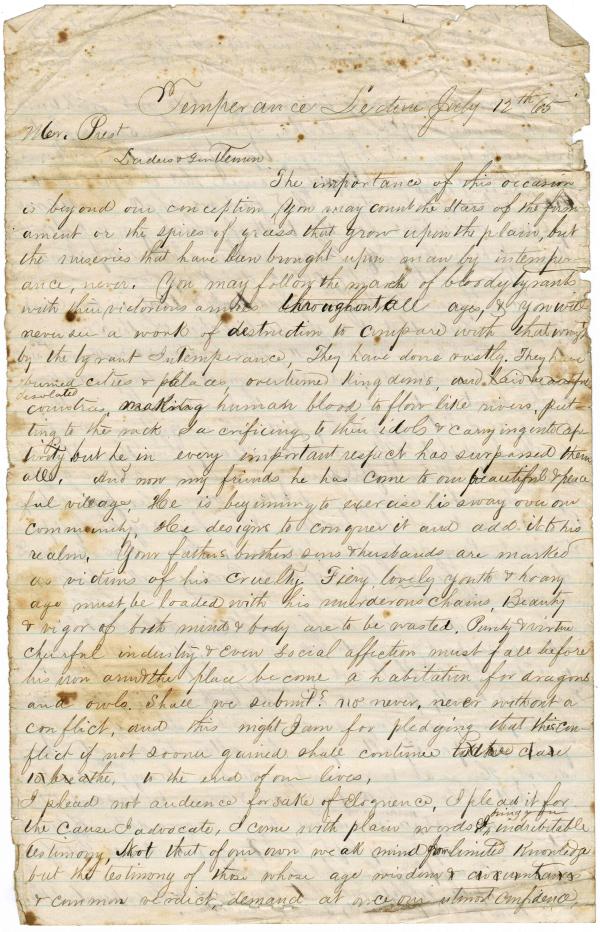 Temperance Lecture July 12th 65
Mr. Prest
Ladies & Gentlemen
The importance of this occasion
is beyond our conception You may count the stars of the firm
ament or the spires of grass that grow upon the plain, but
the miseries that have been brought upon man by intemper-
ance, never. You may follow the march of bloody tyrants
with their victorious armies throughout all ages, & you will
never see a work of destruction to compare with that wrought
by the tyrant Intemperance, They have done vastly. They have
burned cities & palaces, overturned kingdoms, and laid beautiful
desolated
countries, making human blood to flow like rivers, put-
ting to the rack sacrificing to their idols & carrying into cap
tivity but he in every important respect has surpassed them
all. And now my friends he has come to our beautiful & peace
ful village, He is beginning to exercise his sway over our
community He designs to conquer it and add it to his
realm. Your fathers brothers sons & husbands are marked
as victims of his cruelty. Fiery lovely youth & hoary
age must be loaded with his murderous chains, Beauty
& vigor of both mind & body are to be wasted. Purity & virtue
cheerful industry & even social affection must fall before
his iron and the place become a habitation for dragons
and owls. Shall we submit? no never, never without a
conflict, and this night I am for pledging that this con-
flict if not sooner gained shall continue
to breathe, to the end of our lives,
I plead not audience for sake of Eloquence, I plead it for
the cause I advocate, I come with plain words & indubitable
testimony, Not that of our own weak mind limited knowledge
but the testimony of those whose age wisdom &
& common verdict, demand at once our utmost confidence,